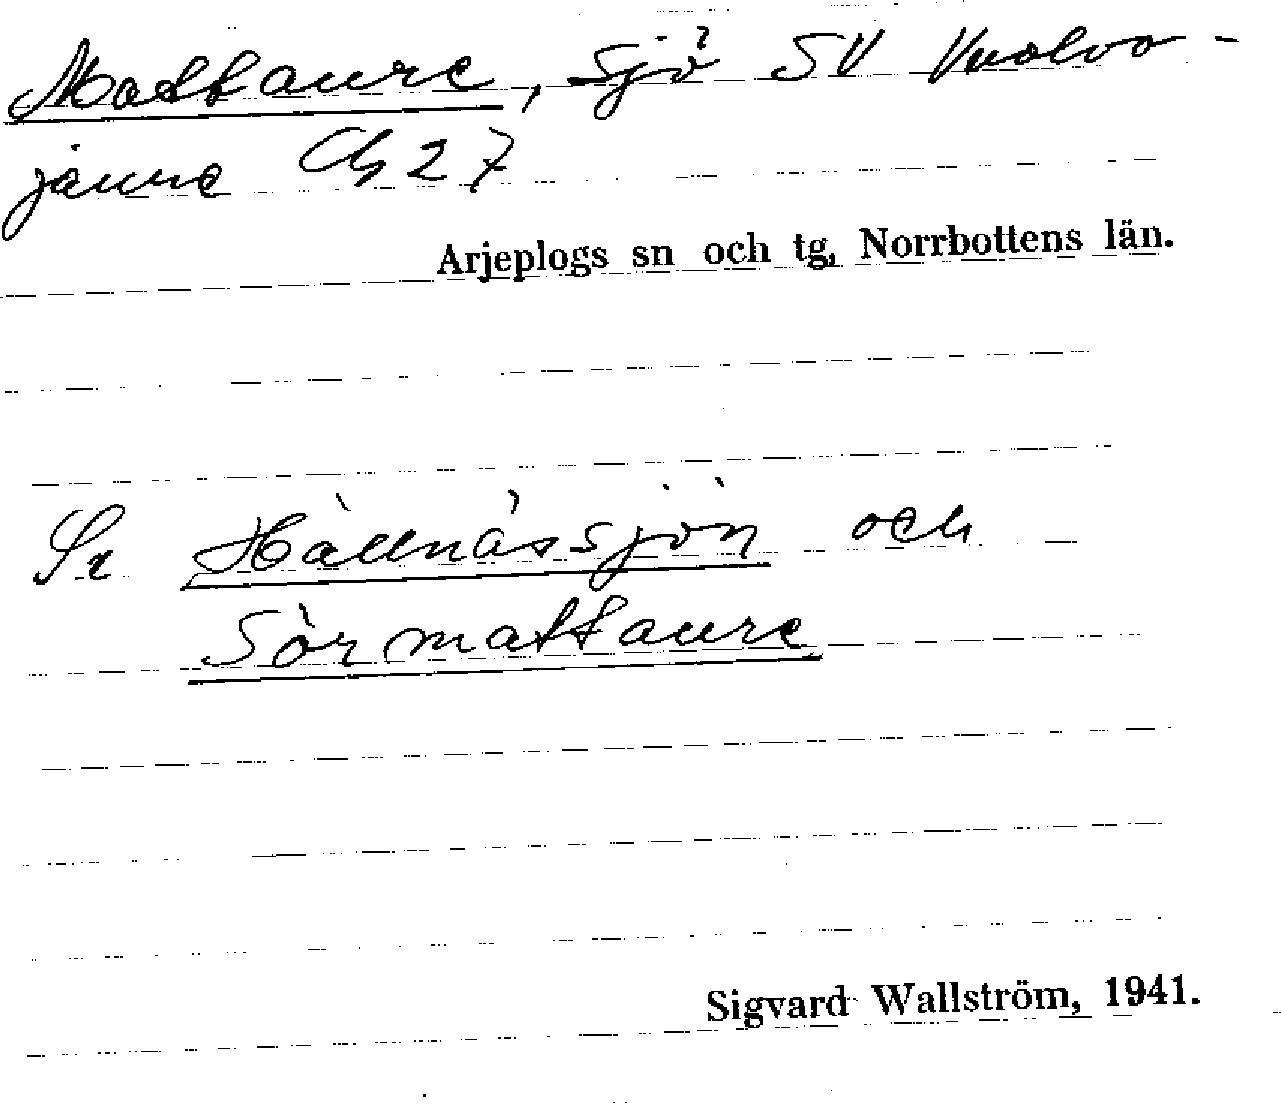 Mattaure, sjö SV Vuolvo-
jaure Ch 27
Arjeplogs sn och tg, Norrbottens län.
Se Hällnässjön och
Sörmattaure
Sigvard Wallström, 1941.